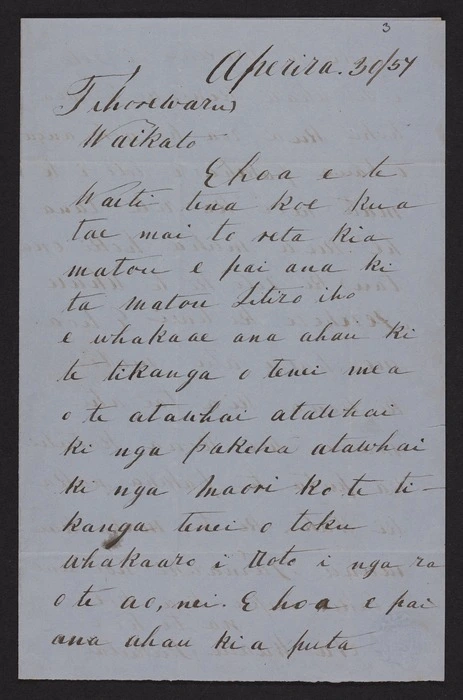 3
Aperira. 30/57
Tihorewaru
Waikato
E hoa e te
Waiti tena koe kua
tae mai to reta kia
matou e pai ana ki
ta matou titiro iho
e whakaae ana ahau ki
te tikanga o tenei mea
o te atawhai atawhai
ki nga pakeha atawhai
ki nga maori ko te ti-
kanga tenei o toku
whakaaro i roto i nga ra
o te ao, nei. E hoa e pai
ana ahau kia puta